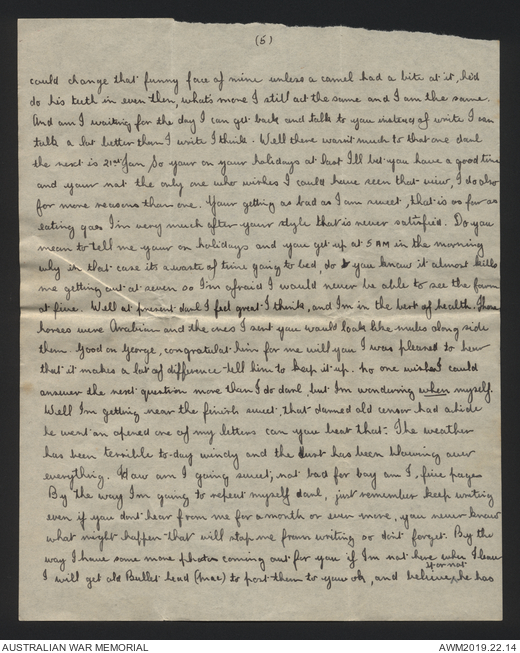 (6)
could change that funny face of mine unless a camel had a bite at it, he'd
do his teeth in even then, what's more I still act the same and I am the same.
And am I waiting for the day I can get back and talk to you instead of write I can
talk a lot better than I write I think. Well there wasn't much to that one darl
the next is 21st Jan, So your on your holidays at last I'll bet you have a good time
and your not the only one who wishes I could have seen that view, I do also
for more reasons than one. Your getting as bad as I am sweet, that is as far as
eating goes I'm very much after your style that is never satisfied. Do you
mean to tell me your on holidays and you get up at 5 AM in the morning
why in that case its a waste of time going to bed, do you know it almost kills
me getting out at seven so I'm afraid I would never be able to see the farm
at five. Well at present darl I feel great I think, and I'm in the best of health. Those
horses were Arabian and the ones I sent you would look like mules along side
them. Good on George, congratulat him for me will you I was pleased to hear
that it makes a lot of difference tell him to keep it up. No one wishes I could
answer the next question more than I do darl but I'm wondering when myself.
Well I'm getting near the finish sweet, that darned old censor had a hide
he went an opened one of my letters can you beat that. The weather
has been terrible to-day windy and the dust has been blowing over
everything. How am I going sweet, not bad for boy am I, five pages
By the way I'm going to repeat myself darl, just remember keep writing
even if you dont hear from me for a month or even more, you never know
what might happen that will stop me from writing so don't forget. By the
way I have some more photos coming out for you if I'm not here when I leave
I will get old Bullet head (Mac) to post them to you ok, and believe it or not he has
AUSTRALIAN WAR MEMORIAL
AWM2019.22.14